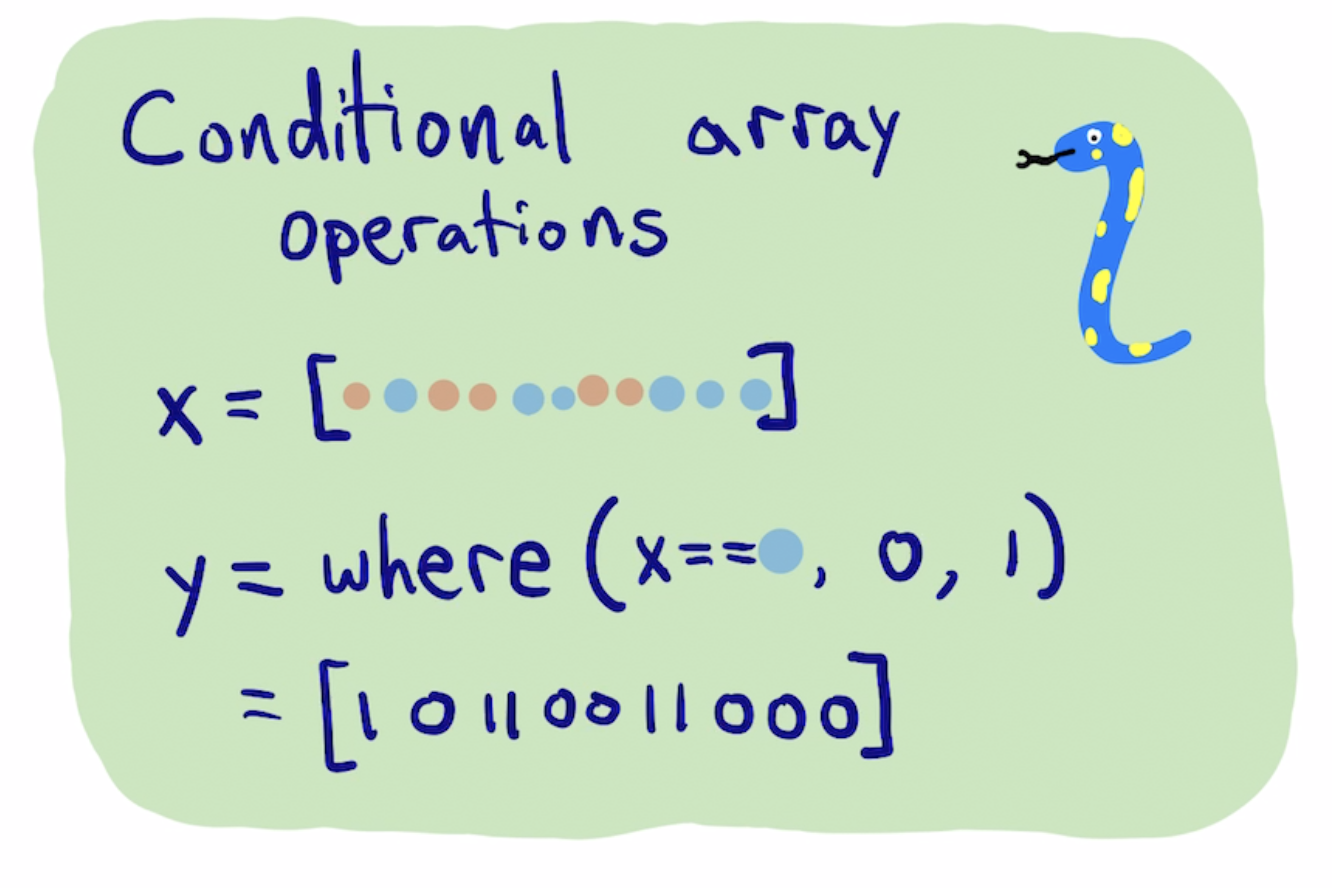 Conditional array
operations
x = [ ]
y = where (x== , 0, 1)
= [1 0 1 1 0 0 1 1 0 0 0]